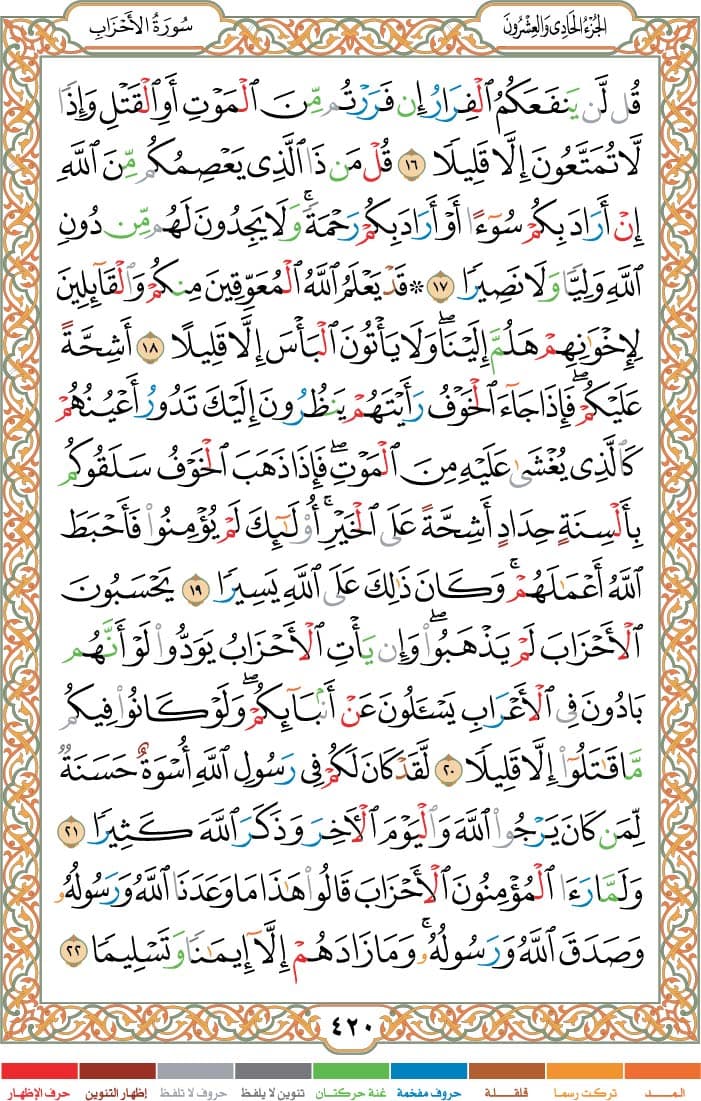 الجزء الحادي والعشرون
سورة الأحزاب
قُل لَّن يَنفَعَكُمُ ٱلْفِرَارُ إِن فَرَرْتُم مِّنَ ٱلْمَوْتِ أَوِ ٱلْقَتْلِ وَإِذًا
لَّا تُمَتَّعُونَ إِلَّا قَلِيلًا ١٦ قُلْ مَن ذَا ٱلَّذِى يَعْصِمُكُم مِّنَ ٱللَّهِ
إِنْ أَرَادَ بِكُمْ سُوٓءًا أَوْ أَرَادَ بِكُمْ رَحْمَةً ۚ وَلَا يَجِدُونَ لَهُم مِّن دُونِ
ٱللَّهِ وَلِيًّا وَلَا نَصِيرًا ١٧ ۞ قَدْ يَعْلَمُ ٱللَّهُ ٱلْمُعَوِّقِينَ مِنكُمْ وَٱلْقَآئِلِينَ
لِإِخْوَٰنِهِمْ هَلُمَّ إِلَيْنَا ۖ وَلَا يَأْتُونَ ٱلْبَأْسَ إِلَّا قَلِيلًا ١٨ أَشِحَّةً
عَلَيْكُمْ ۖ فَإِذَا جَآءَ ٱلْخَوْفُ رَأَيْتَهُمْ يَنظُرُونَ إِلَيْكَ تَدُورُ أَعْيُنُهُمْ
كَٱلَّذِى يُغْشَىٰ عَلَيْهِ مِنَ ٱلْمَوْتِ ۖ فَإِذَا ذَهَبَ ٱلْخَوْفُ سَلَقُوكُم
بِأَلْسِنَةٍ حِدَادٍ أَشِحَّةً عَلَى ٱلْخَيْرِ ۚ أُو۟لَـٰٓئِكَ لَمْ يُؤْمِنُوا۟ فَأَحْبَطَ
ٱللَّهُ أَعْمَـٰلَهُمْ ۚ وَكَانَ ذَٰلِكَ عَلَى ٱللَّهِ يَسِيرًا ١٩ يَحْسَبُونَ
ٱلْأَحْزَابَ لَمْ يَذْهَبُوا۟ ۖ وَإِن يَأْتِ ٱلْأَحْزَابُ يَوَدُّوا۟ لَوْ أَنَّهُم
بَادُونَ فِى ٱلْأَعْرَابِ يَسْـَٔلُونَ عَنْ أَنۢبَآئِكُمْ ۖ وَلَوْ كَانُوا۟ فِيكُم
مَّا قَـٰتَلُوٓا۟ إِلَّا قَلِيلًا ٢٠ لَّقَدْ كَانَ لَكُمْ فِى رَسُولِ ٱللَّهِ أُسْوَةٌ حَسَنَةٌ
لِّمَن كَانَ يَرْجُوا۟ ٱللَّهَ وَٱلْيَوْمَ ٱلْـَٔاخِرَ وَذَكَرَ ٱللَّهَ كَثِيرًا ٢١
وَلَمَّا رَءَا ٱلْمُؤْمِنُونَ ٱلْأَحْزَابَ قَالُوا۟ هَـٰذَا مَا وَعَدَنَا ٱللَّهُ وَرَسُولُهُۥ
وَصَدَقَ ٱللَّهُ وَرَسُولُهُۥ ۚ وَمَا زَادَهُمْ إِلَّآ إِيمَـٰنًا وَتَسْلِيمًا ٢٢
٤٢٠
المـــد تركت رسما قلقـلة حروف مفخمة غنة حركتان تنوين لا يلفظ حروف لا تلفظ إظهار التنوين حرف الإظهار